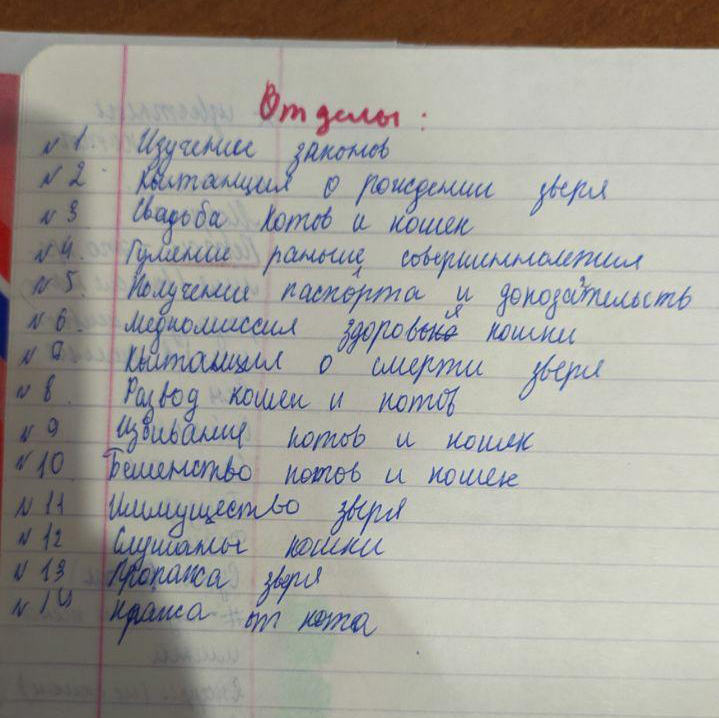 Отделы:
№1 Изучение законов
№2 Квитанция о рождении зверя
№3 Свадьба котов и кошек
№4. Гуляние раньше совершиннолетия
№5. Получение паспорта и доказательств
№6. Медкомиссия здоровья кошки
№7 Квитанция о смерти зверя
№8. Развод кошек и котов
№9 Избивания котов и кошек
№10 Бешенство котов и кошек
№11 Имимущество зверя
№12 кошки
№13 Пропажа зверя
№14 Кража от кота